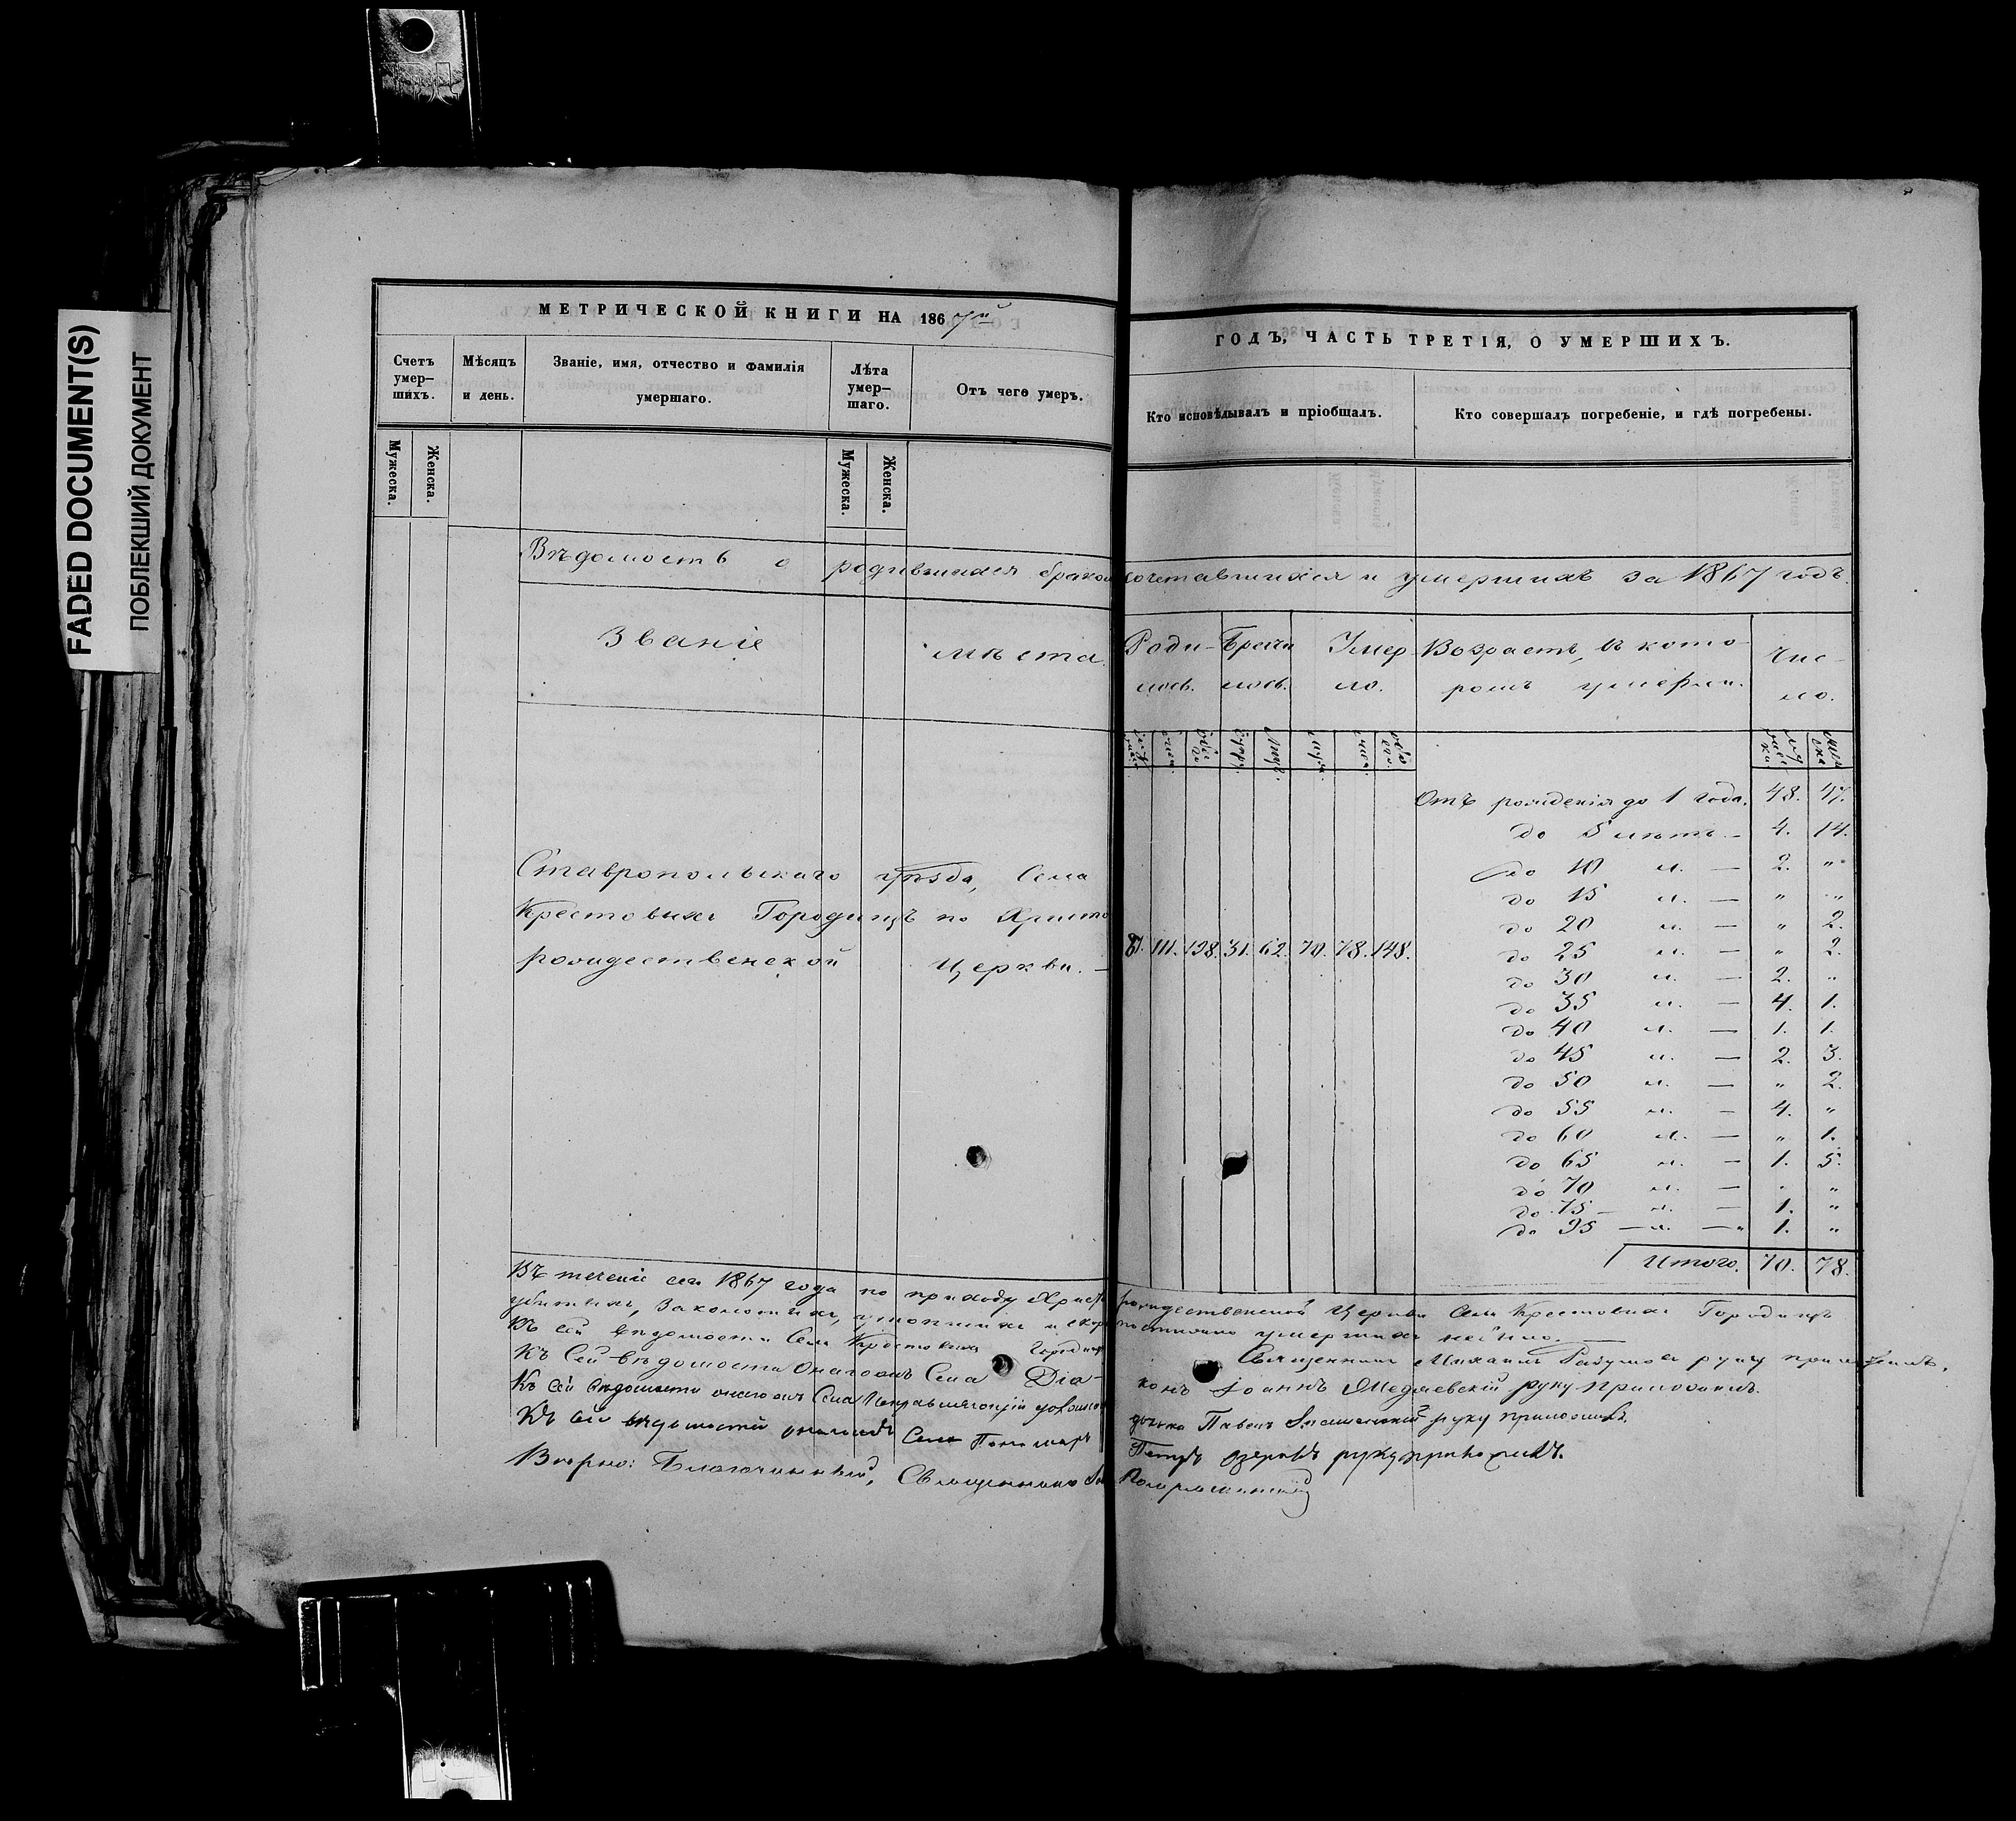 FADED DOCUMENT(S)
ПОБЛЕКШИЙ ДОКУМЕНТ
МЕТРИЧЕСКОЙ КНИГИ НА 1867й
ГОДЪ, ЧАСТЬ ТРЕТІЯ, О УМЕРШИХЪ.
Счетъ умер–шихъ.
Мѣсяцъ и день.
Званіе, имя, отчество и фамилія умершаго.
Лѣта умер–шаго.
Отъ чего умеръ.
Кто исповѣдывалъ и пріобщалъ.
Кто совершалъ погребеніе, и гдѣ погребены.
Мужеска.
Женска.
Мужеска.
Женска.
Вѣдомость о родившихся бракосочетавшихся и умершихъ за 1867 годъ.
Званіе мѣста.
Роди-
лось.
умер-
ло.
Возрастъ, въ кото-
ромъ умерли.
Чис-
ло.
Отъ рожденія до 1 года. 48. 47.
до 5 лѣтъ. — 4. 14.
до 10 л. — 2. "
до 15 л. — " "
до 20 л. — " 2.
до 25 л. — " 2.
до 30 л. — 2. "
до 35 л. — 4. 1.
до 40 л. — 1. 1.
до 45 л. — 2. 3.
до 50 л. — " 2.
до 55 л. — 4. "
до 60 л. — " 1.
до 65 л. — 1. 5.
до 70 л. — " "
до 75 — л. — 1. "
до 95 — л. — 1. "
Итого. 70. 78.
Ставропольскаго уѣзда, Села
Крестовыхъ Городищъ по Христо
рождественской Церкви. —
111. 198. 31. 62. 70. 78. 148.
Въ теченіе сего 1867 года по приходу Христорождественской Церкви Села Крестовыхъ Городищъ
убитыхъ, заколотыхъ, утопшихъ и скоропостижно умершихъ небыло. —
Къ сей вѣдомости Села Крестовыхъ Городищъ Священникъ Михаилъ руку приложилъ.
Къ сей вѣдомости онагожъ Села Діа-
конъ Іоаннъ Медяевскій руку приложилъ.
Къ сей вѣдомости онагожъ Села Исправляющій должн Павелъ руку приложилъ.
Къ сей вѣдомости онагожъ Села Пономарь Петръ Озеровъ руку приложилъ.
Вѣрно: Благочинный, Священникъ